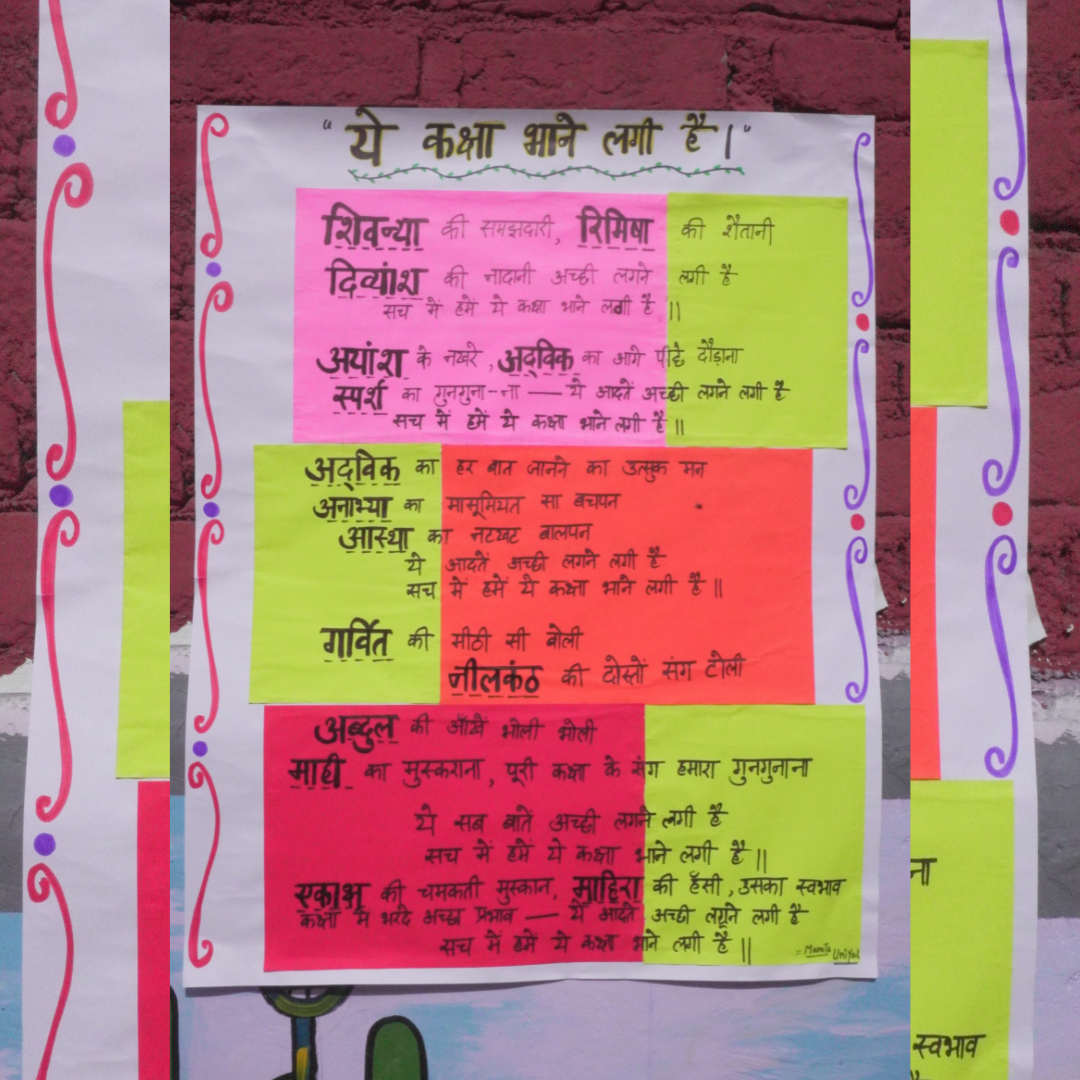 " ये कक्षा भाने लगी है । "
शिवन्या की समझदारी, रिमिषा की शैतानी
दिव्यांश की नादानी अच्छी लगने लगी है
सच में हमें ये कक्षा भाने लगी है ।।
अयांश के नखरे, अद्विक का आगे पीछे दौड़ाना
स्पर्श का गुनगुना-ना — ये आदतें अच्छी लगने लगी है
सच में हमें ये कक्षा भाने लगी है ।।
अद्विक का हर बात जानने का उत्सुक मन
अनाभ्या का मासूमियत सा बचपन
आस्था का नटखट बालपन
ये आदतें अच्छी लगने लगी है
सच में हमें ये कक्षा भाने लगी है ।।
गर्वित की मीठी सी बोली
नीलकंठ की दोस्तों संग टोली
अब्दुल की आँखें भोली भोली
माही का मुस्कराना, पूरी कक्षा के संग हमारा गुनगुनाना
ये सब बातें अच्छी लगने लगी है
सच में हमें ये कक्षा भाने लगी है ।।
एकाक्ष की चमकती मुस्कान, माहिरा की हँसी, उसका स्वभाव
कक्षा में भरदे अच्छा प्रभाव — ये आदतें अच्छी लगने लगी है
सच में हमें ये कक्षा भाने लगी है ।।
= Mamta Uniyal
ना
स्वभाव